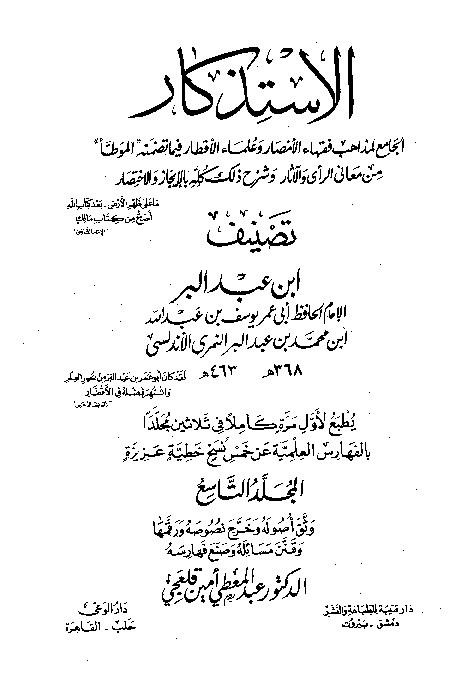 الاستذكار
الجامع لمذاهب فقهاء الأمصار وعلماء الأقطار فيما تضمنه "الموطأ"
من معاني الرأي والآثار وشرح ذلك كله بالإيجاز والاختصار
ما على ظهر الأرض - بعد كتاب الله
أصح من كتاب مالك
تصنيف
ابن عبد البر
الإمام الحافظ أبي عمر يوسف بن عبد الله
ابن محمد بن عبد البر النمري الأندلسي
٣٦٨هـ ٤٦٣هـ
لقد كان أبو عمر بن عبد البر من بحور العلم
واشتهر فضله في الأقطار
يطبع لأول مرة كاملا في ثلاثين مجلدا
بالفهارس العلمية عن خمس نسخ خطية عزيزة
المجلد التاسع
وثق أصوله وخرج نصوصه ورقمها
وقنن مسائله وصنع فهارسه
الدكتور عبد المعطي أمين قلعجي
دار قتيبة للطباعة والنشر
دمشق - بيروت
دار الوعي
حلب - القاهرة